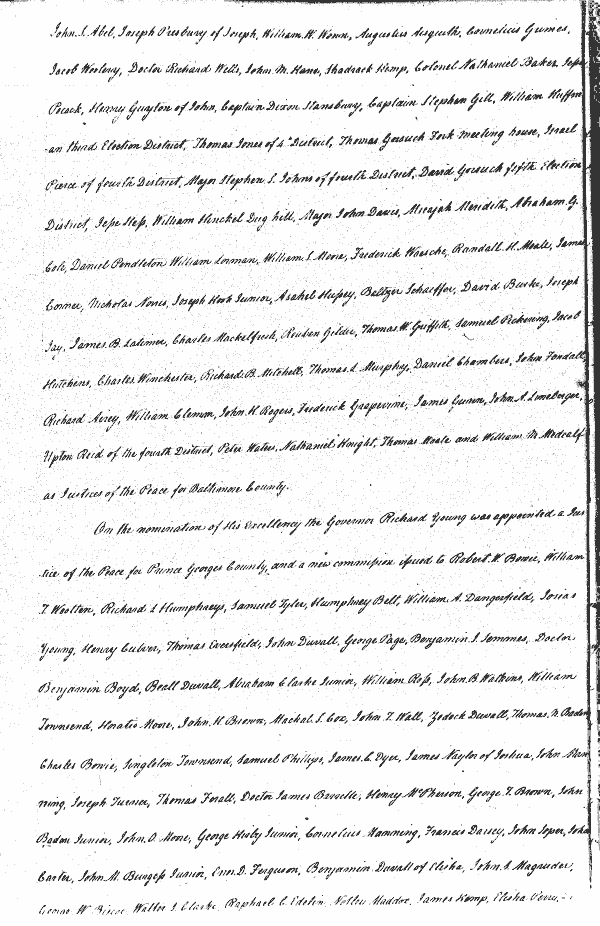 John. S. Abel, Joseph Presbury of Joseph, William. W. Augustus Cornelius Grimes,
Jacob Wooleny, Doctor Richard Wells, John. M. Kane, Shadrack Kemp, Colonel Nathaniel Baker, Jesse
Pocock, Henry Guyton of John, Captain Dixon Stansbury, Captain Stephen Gill, William Huffm
-an third Election District, Thomas Jones of 4th District, Thomas Gorsuch Fork meeting house, Israel
Pierce of fourth District, Major Stephen. S. Johns of fourth District, David Gorsuch fifth Election
District, Jesse William Hinckel Dug hill, Major John Davis, Micajah Meredith, Abraham. G.
Cole, Daniel Pendleton William Lorman, William. S. Moore, Frederick Waesche, Randall. H. Moale, James
Conner, Nicholas Norris, Joseph Hook Junior, Asahel Hussey, Baltzer Schaeffer, David Burke, Joseph
Jay, James. B. Latimer, Charles Mackelfresh, Reuben Gilder, Thomas. W. Griffith, Samuel Pickering, Jacob
Hutchens, Charles Winchester, Richard. B. Mitchell, Thomas. L. Murphey, Daniel Chambers, John
Richard William Clemm, John. H. Rogers, Frederick Grapevine, James Gunn, John. A.
Upton Reid of the fourth District, Peter Waters, Nathaniel Knight, Thomas Moale and William. M. Medcalf
as Justices of the Peace for Baltimore County.
On the nomination of His Excellency the Governor Richard Young was appointed a Jus
-tice of the Peace for Prince Georges County, and a new commission issued to Robert. W. Bowie, William
T. Wootton, Richard. L. Humphreys, Samuel Tyler, Humphrey Belt, William. A. Dangerfield, Josias
Young, Henry Culver, Thomas Eversfield, John Duvall, George Page, Benjamin. J. Semmes, Doctor
Benjamin Boyd, Beall Duvall, Abraham Clarke Junior, William Ross, John. B. Watkins, William
Townsend, Horatio Moore, John. H. Brown, Machal. S. Cox, John. T. Wall, Zedock Duvall, Thomas. N. Baden
Charles Bowie, Singleton Townsend, Samuel Phillips, James. E. Dyer, James Naylor of Joshua, John Man
ning, Joseph Turner, Thomas Forall, Doctor James Henry McPherson, George. T. Brown, John
Baden Junior, John. O. Moore, George Junior, Cornelius Manning, Francis Darcey, John Soper, John
Carter, John. M. Burgess Junior, Enos. D. Ferguson, Benjamin Duvall of Elisha, John. S. Magruder,
George. W. Biscoe, Walter. S. Clarke, Raphael. C. Edelin, Notley Maddox, James Kemp, Elisha Perry,